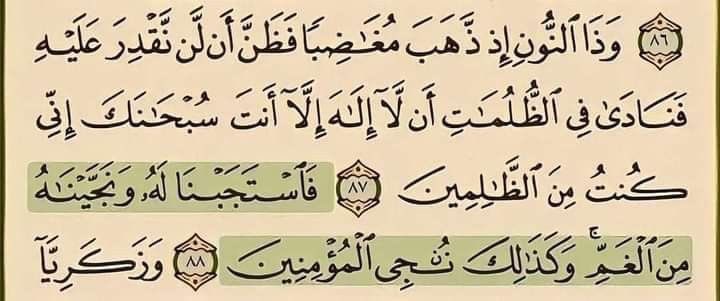 ٨٦ وَذَا ٱلنُّونِ إِذ ذَّهَبَ مُغَٰضِبًا فَظَنَّ أَن لَّن نَّقْدِرَ عَلَيْهِ
فَنَادَىٰ فِى ٱلظُّلُمَٰتِ أَن لَّآ إِلَٰهَ إِلَّآ أَنتَ سُبْحَٰنَكَ إِنِّى
كُنتُ مِنَ ٱلظَّٰلِمِينَ ٨٧ فَٱسْتَجَبْنَا لَهُۥ وَنَجَّيْنَٰهُ
مِنَ ٱلْغَمِّ ۚ وَكَذَٰلِكَ نُۨجِى ٱلْمُؤْمِنِينَ ٨٨ وَزَكَرِيَّآ